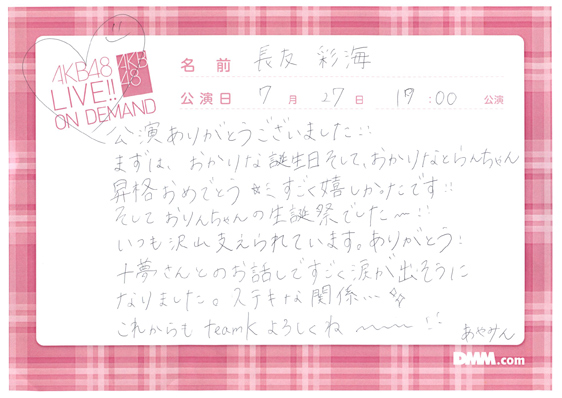 AKB48
LIVE!!
ON DEMAND
AKB
48
名前 長友 彩海
公演日 7月27日 17:00 公演
公演ありがとうございました
まずは、おかりな誕生日そして、おかりなとらんちゃん
昇格おめでとう すごく嬉しかったです!!
そしておりんちゃんの生誕祭でした〜
いつも沢山支えられています。ありがとう!
十夢さんとのお話しですごく涙が出そうに
なりました。ステキな関係…
これからも teamK よろしくね 〜〜
あやみん
DMM.com